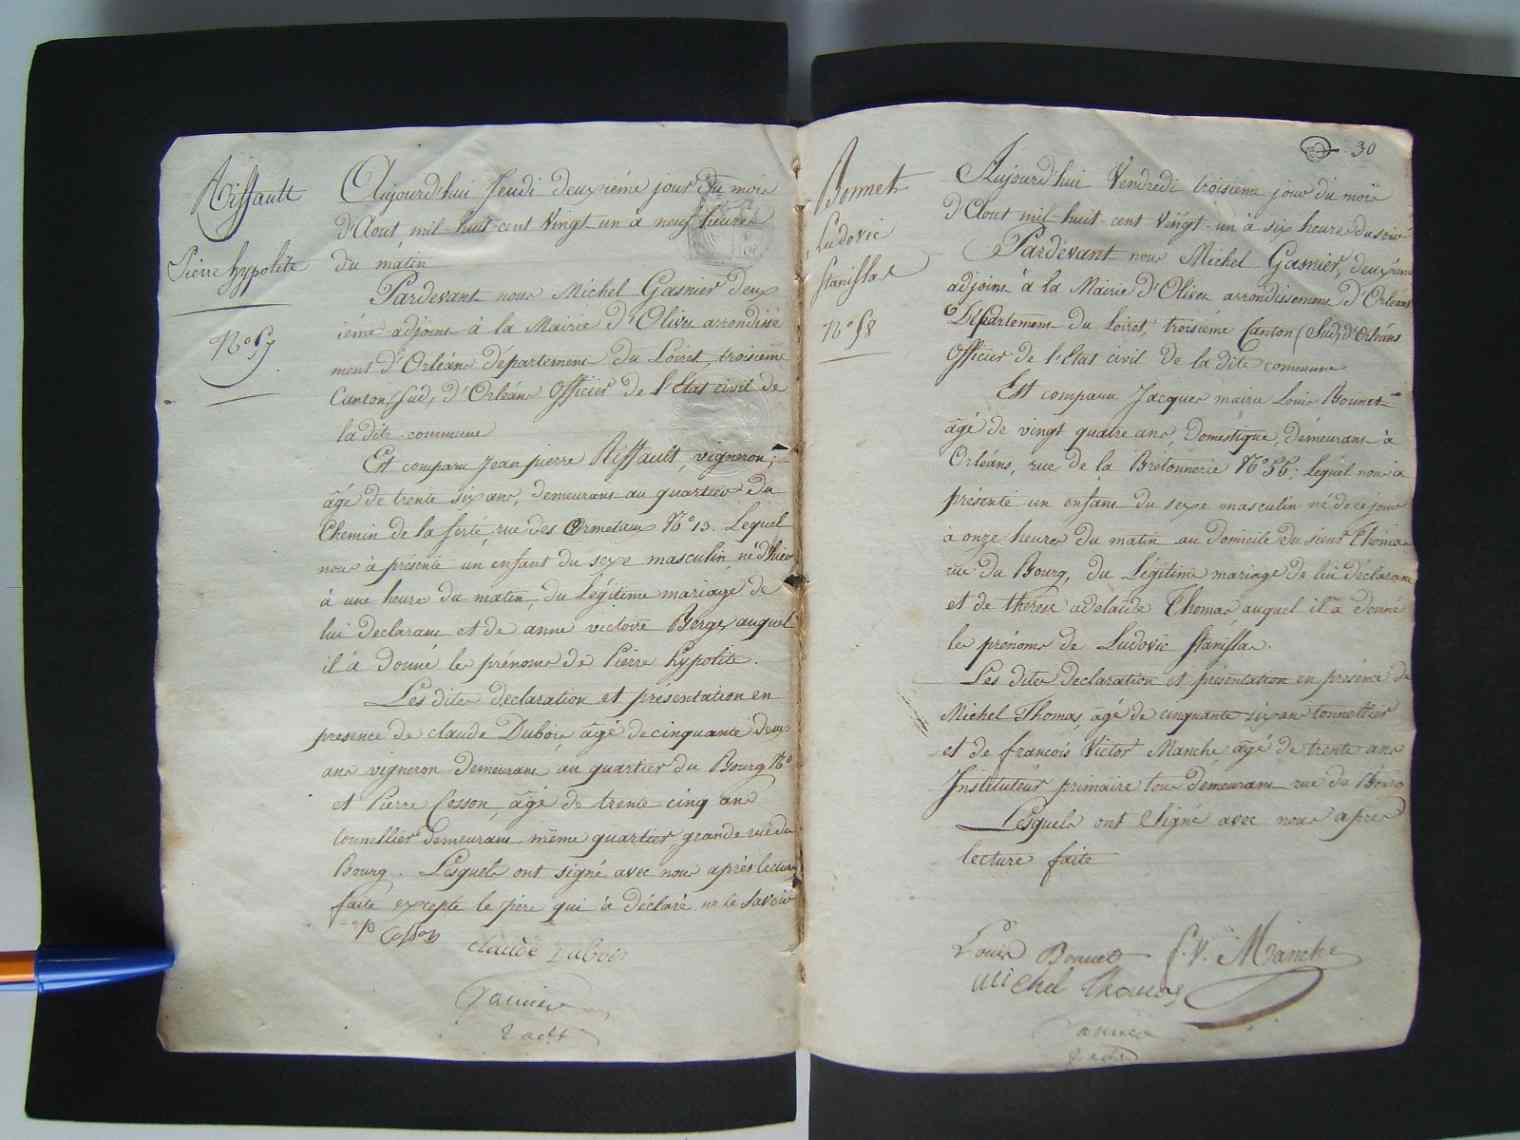 Riffault
Pierre hypolite
N° 57
Aujourd'hui Jeudi deuxième jour du mois
d'Aout mil-huit-cent vingt-un à neuf heures
du matin
Pardevant nous Michel Gasnier deux
ième adjoint à la Mairie d'Olivet arrondisse
ment d'Orléans département du Loiret, troisième
Canton, Sud, d'Orléans Officier de l'Etat civil de
la dite commune
Est comparu Jean pierre Riffault, vigneron,
âgé de trente six ans, demeurant au quartier du
Chemin de la ferté, rue des Ormeteau N° 13. Lequel
nous à présenté un enfant du sexe masculin né d'hier
à une heure du matin, du légitime mariage de
lui declarant et de anne victoire Berge, auquel
il à donné les prénoms de Pierre hypolite.
Les dites declaration et présentation en
presence de claude Dubois, âgé de cinquante deux
ans vigneron demeurant au quartier du Bourg N°
et Pierre Cosson, âgé de trente cinq ans
tonnellier demeurant même quartier, grande rue du
Bourg. Lesquels ont signé avec nous après lecture
faite excepté le père qui à déclaré ne le savoir
p Cosson
claude Dubois
Gasnier
2 adjt
30
Bonnet
Ludovic
Stanislas
N° 58
Aujourd'hui Vendredi troisieme jour du mois
d'Aout mil-huit-cent vingt-un à six heure du soir
Pardevant nous Michel Gasnier, deuxieme
adjoint à la Mairie d'Olivet arrondissement d'Orléans
Département du Loiret, troisième Canton (Sud) d'Orléans
Officier de l'Etat civil de la dite commune
Est comparu Jacques marie Louis Bonnet
âgé de vingt quatre ans, Domestique, demeurant à
Orléans, rue de la Bretonnerie N° 56; lequel nous à
présenté un enfant du sexe masculin né de ce jour
à onze heures du matin au domicile du sieur Thomas
rue du Bourg, du Légitime mariage de lui déclarant
et de therese adelaide Thomas auquel il a donné
les prénoms de Ludovic Stanislas.
Les dites Declaration et présentation en présence de
Michel Thomas, âgé de cinquante six ans tonnellier
et de françois Victor Manche âgé de trente ans
Instituteur primaire tous demeurant rue du Bourg
Lesquels ont signé avec nous apres
lecture faite
Louis Bonnet F. V. Manche
Michel Thomas
Gasnier
2 adjt